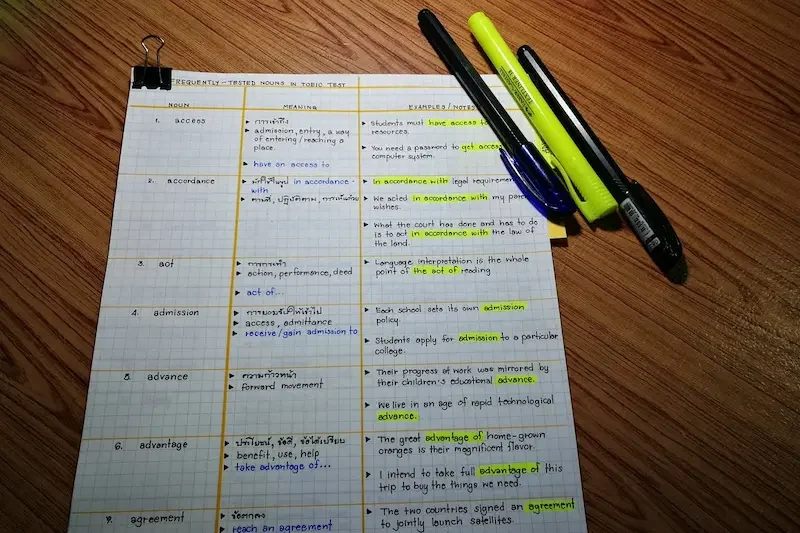 FREQUENTLY-TESTED NOUNS IN TOEIC TEST
NOUN MEANING EXAMPLES / NOTES
1. access
▶ การเข้าถึง
▶ admission, entry, a way
of entering / reaching a
place.
▶ have an access to
▶ Students must have access to
resources.
▶ You need a password to get access
computer system.
2. accordance
▶ in accordance -
with
▶ ตามที่, ปฏิบัติตาม,
▶ In accordance with legal
▶ We acted in accordance with my
wishes.
▶ What the court has done and has to do
is to act in accordance with the law of
the land.
3. act
▶ การกระทำ
▶ action, performance, deed
▶ act of...
▶ Language interpretation is the whole
point of the act of reading
4. admission
▶ การยอมรับให้เข้าไป
▶ access, admittance
▶ receive/gain admission to
▶ Each school sets its own admission
policy.
▶ Students apply for admission to a particular
college.
5. advance
▶ ความก้าวหน้า
▶ forward movement
▶ Their progress at work was mirrored by
their children's educational advance.
▶ We live in an age of rapid technological
advance.
6. advantage
▶ ประโยชน์, ข้อดี, ข้อได้เปรียบ
▶ benefit, use, help
▶ take advantage of...
▶ The great advantage of home-grown
oranges is their magnificent flavor.
▶ I intend to take full advantage of this
trip to buy the things we need.
agreement
▶ ข้อตกลง
▶ reach an agreement
▶ The two countries signed an agreement
to jointly launch satellites.